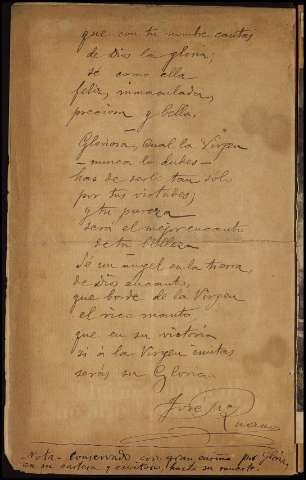 que con tu nombre cantas
de Dios la gloria;
sé como ella
feliz, inmaculada,
preciosa y bella.
—
Gloriosa, cual la Virgen
— nunca lo dudes —
has de serlo tan sólo
por tus virtudes;
y tu pureza
será el mejor encanto
de tu belleza
—
Sé un ángel en la tierra,
de Dios encanto,
que borde de la Virgen
el rico manto,
que en su victoria
si á la Virgen imitas
serás su Gloria.
José Mª
Nota - Conservado con gran cariño por Gloria,
en su cartera y escritorio, hasta su muerte.